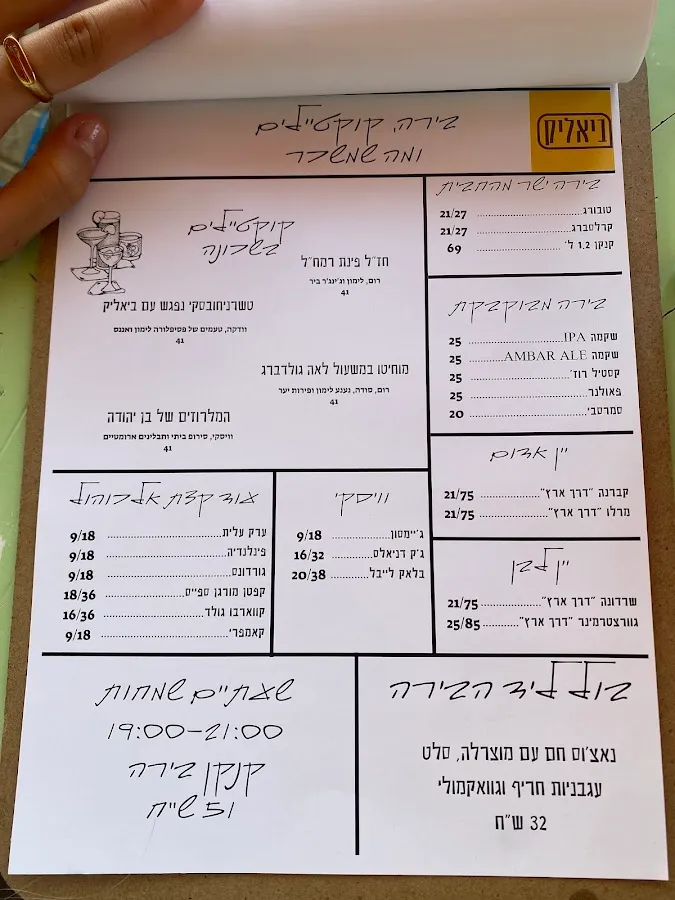 בירה, קוקטיילים
ומה שמשכר
ביאליק
קוקטיילים
בשכונה
חז"ל פינת רמח"ל
רום, לימון וג'ינג'ר ביר
41
טשרניחובסקי נפגש עם ביאליק
וודקה, טעמים של פסיפלורה לימון ואננס
41
מוחיטו במשעול לאה גולדברג
רום, סודה, נענע לימון ופירות יער
41
המלרוזים של בן יהודה
וויסקי, סירופ ביתי ותבלינים ארומטיים
41
בירה ישר מהחבית
טובורג 21/27
קרלסברג 21/27
קנקן 1,2 ל' 69
בירה מבוקבקת
שקמה IPA 25
שקמה AMBAR ALE 25
קסטיל רוז' 25
פאולנר 25
סמרסבי 20
יין אדום
קברנה "דרך ארץ" 21/75
מרלו "דרך ארץ" 21/75
יין לבן
שרדונה "דרך ארץ" 21/75
גוורצטרמינר "דרך ארץ" 25/85
וויסקי
ג'יימסון 9/18
ג'ק דניאלס 16/32
בלאק לייבל 20/38
עוד קצת אלכוהול
ערק עלית 9/18
פינלנדיה 9/18
גורדונס 9/18
קפטן מורגן ספייס 18/36
קווארבו גולד 16/36
קאמפרי 9/18
בול ליד הבירה
נאצ'וס חם עם מוצרלה, סלט
עגבניות חריף וגוואקמולי
32 ש"ח
שעתיים שמחות
19:00-21:00
קנקן בירה
51 ש"ח